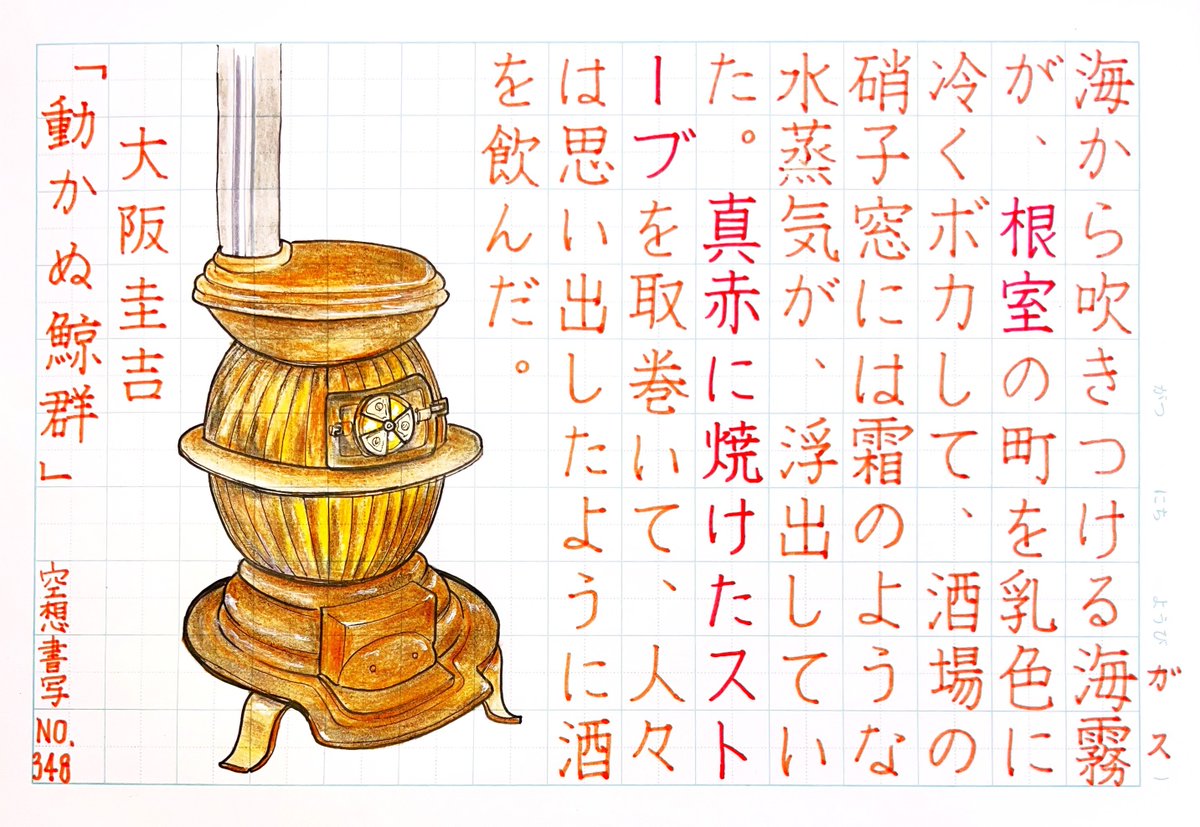 がつ にち ようび )
ガス
海から吹きつける海霧
が、根室の町を乳色に
冷くボカして、酒場の
硝子窓には霜のような
水蒸気が、浮出してい
た。真赤に焼けたスト
ーブを取巻いて、人々
は思い出したように酒
を飲んだ。
大阪圭吉
「動かぬ鯨群」
空想書写 NO.348